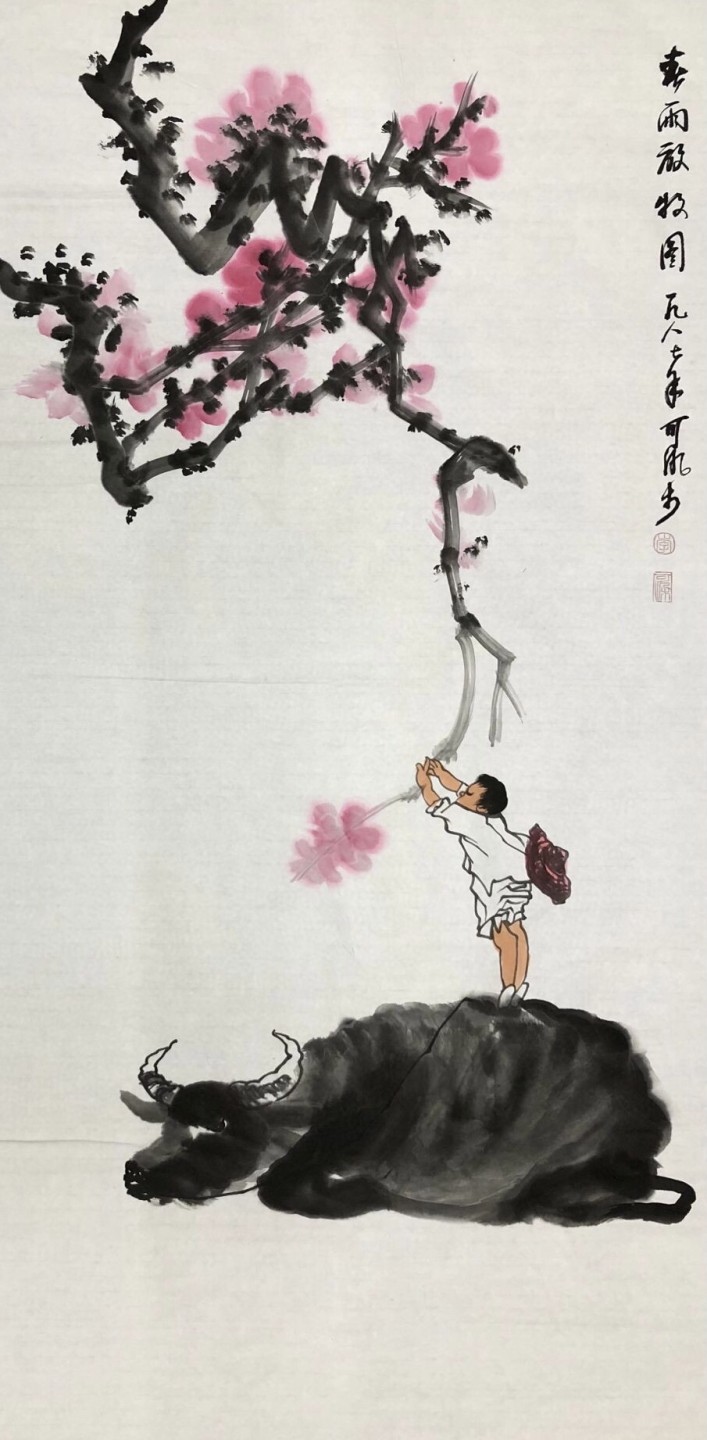 春雨放牧图 一九八七年 可風